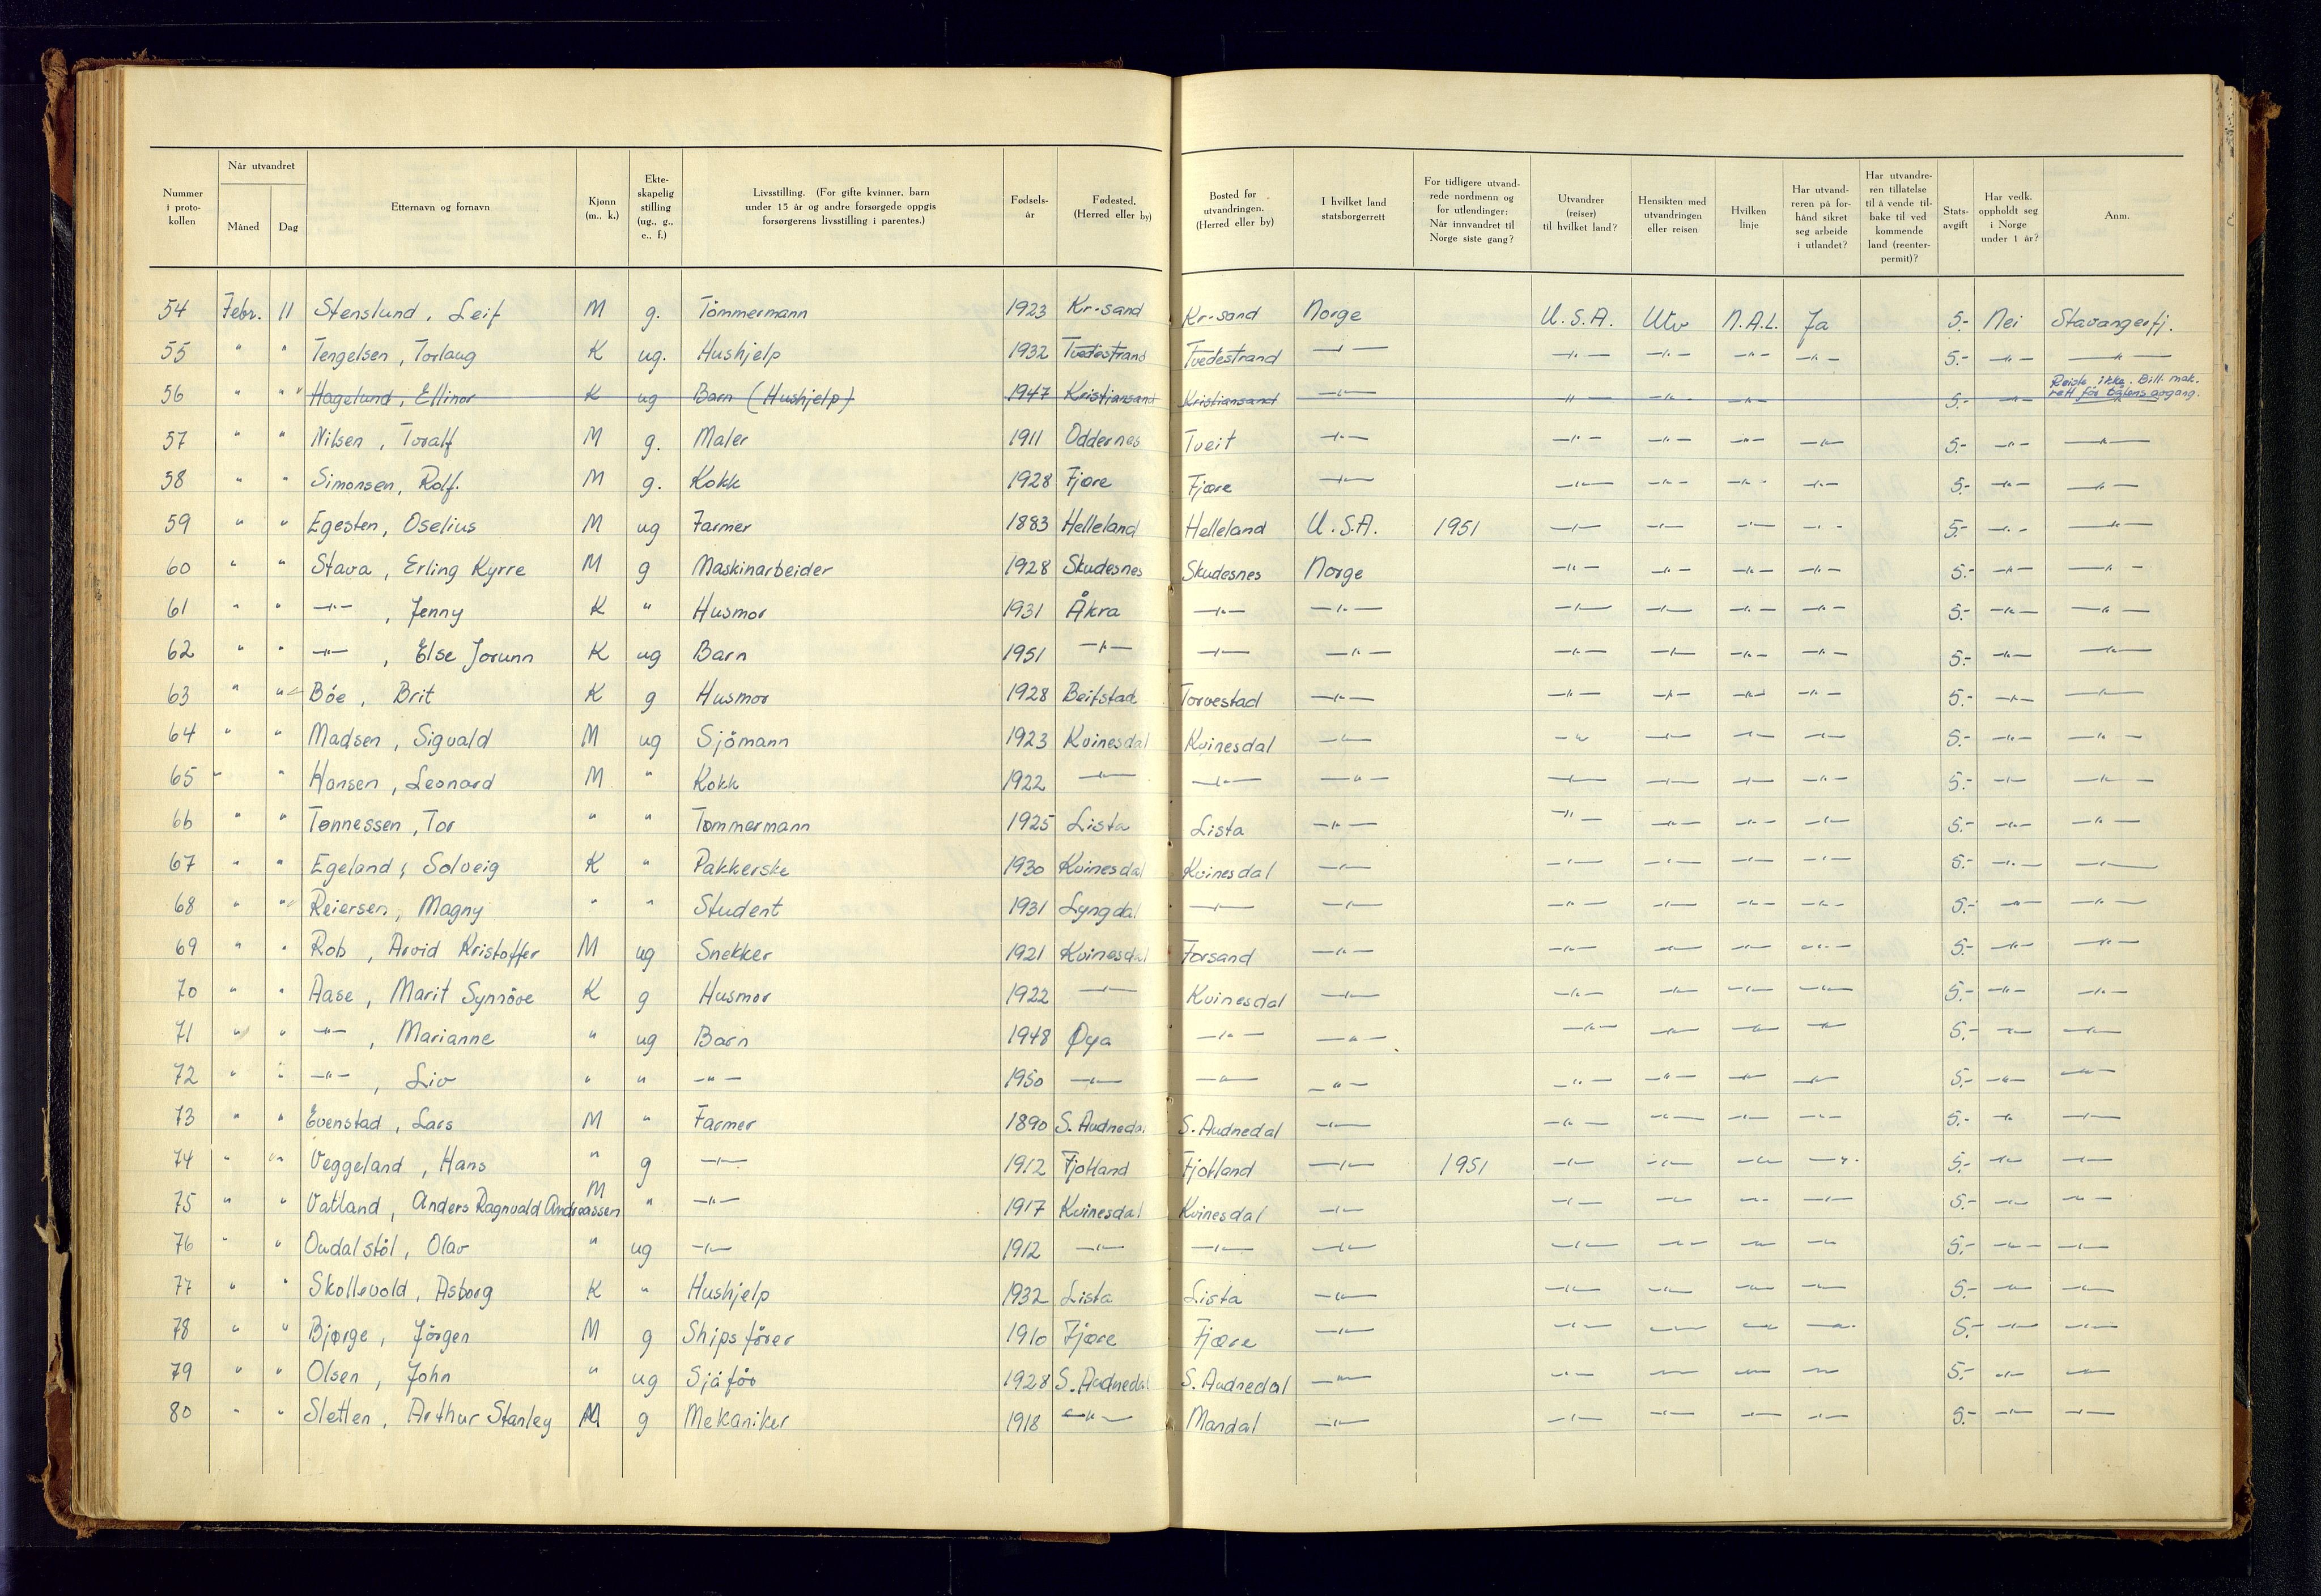 Nummer i proto- kollen | Når utvandret Måned | Dag | Etternavn og fornavn | Kjønn (m., k.) | Ekte- skapelig stilling (ug., g., e., f.) | Livsstilling. (For gifte kvinner, barn under 15 år og andre forsørgede oppgis forsørgerens livsstilling i parentes.) | Fødsels- år | Fødested. (Herred eller by) | Bosted før utvandringen. (Herred eller by) | I hvilket land statsborgerrett | For tidligere utvand- rede nordmenn og for utlendinger: Når innvandret til Norge siste gang? | Utvandrer (reiser) til hvilket land? | Hensikten med utvandringen eller reisen | Hvilken linje | Har utvand- reren på for- hånd sikret seg arbeide i utlandet? | Har utvandre- ren tillatelse til å vende til- bake til ved kommende land (reenter- permit)? | Stats- avgift | Har vedk. oppholdt seg i Norge under 1 år? | Anm.
54 Febr. 11 Stenslund, Leif M g. Tömmermann 1923 Kr-sand Kr-sand Norge U.S.A. Utv N.A.L. Ja 5.- Nei Stavangerfj.
55 " " Tengelsen, Torlaug K ug. Hushjelp 1932 Tvedestrand Tvedestrand —"— —"— —"— —"— —"— 5.- —"— —"—
56 " " Hagelund, Ellinor K ug Barn (Hushjelp) 1947 Kristiansand Kristiansand —"— —"— —"— —"— 5.- —"— Reiste ikke. Bill. mak. rett før båtens avgang.
57 " " Nilsen, Toralf M g. Maler 1911 Oddernes Tveit —"— —"— —"— —"— —"— 5.- —"— —"—
58 " " Simonsen, Rolf. M g. Kokk 1928 Fjære Fjære —"— —"— —"— —"— —"— 5.- —"— —"—
59 " " Egesten, Oselius M ug Farmer 1883 Helleland Helleland U.S.A. 1951 —"— —"— —"— —"— 5.- —"— —"—
60 " " Stava, Erling Kyrre M g Maskinarbeider 1928 Skudesnes Skudesnes Norge —"— —"— —"— —"— 5.- —"— —"—
61 " " —"—, Jenny K " Husmor 1931 Åkra —"— —"— —"— —"— —"— —"— 5.- —"— —"—
62 " " —"—, Else Jorunn K ug Barn 1951 —"— —"— —"— —"— —"— —"— —"— 5.- —"— —"—
63 " " Böe, Brit K g Husmor 1928 Beitstad Torvestad —"— —"— —"— —"— —"— 5.- —"— —"—
64 " " Madsen, Sigvald M ug Sjömann 1923 Kvinesdal Kvinesdal —"— —"— —"— —"— —"— 5.- —"— —"—
65 " " Hansen, Leonard M " Kokk 1922 —"— —"— —"— —"— —"— —"— —"— 5.- —"— —"—
66 " " Tønnessen, Tor " " Tømmermann 1925 Lista Lista —"— —"— —"— —"— —"— 5.- —"— —"—
67 " " Egeland, Solveig K " Pakkerske 1930 Kvinesdal Kvinesdal —"— —"— —"— —"— —"— 5.- —"— —"—
68 " " Reiersen, Magny " " Student 1931 Lyngdal —"— —"— —"— —"— —"— —"— 5.- —"— —"—
69 " " Rob, Arvid Kristoffer M ug Snekker 1921 Kvinesdal Forsand —"— —"— —"— —"— —"— 5.- —"— —"—
70 " " Aase, Marit Synnöve K g Husmor 1922 —"— Kvinesdal —"— —"— —"— —"— —"— 5.- —"— —"—
71 " " —"—, Marianne " ug Barn 1948 Øya —"— —"— —"— —"— —"— —"— 5.- —"— —"—
72 " " —"—, Liv " " —"— 1950 —"— —"— —"— —"— —"— —"— —"— 5.- —"— —"—
73 " " Evenstad, Lars M " Farmer 1890 S. Audnedal S. Audnedal —"— —"— —"— —"— —"— 5.- —"— —"—
74 " " Veggeland, Hans " g —"— 1912 Fjotland Fjotland —"— 1951 —"— —"— —"— —"— 5.- —"— —"—
75 " " Vatland, Anders Ragnvald Andreassen M " —"— 1917 Kvinesdal Kvinesdal —"— —"— —"— —"— —"— 5.- —"— —"—
76 " " Oudalstöl, Olav " ug —"— 1912 —"— —"— —"— —"— —"— —"— —"— 5.- —"— —"—
77 " " Skollevold, Asborg K " Hushjelp 1932 Lista Lista —"— —"— —"— —"— —"— 5.- —"— —"—
78 " " Bjørge, Jörgen M g Shipsförer 1910 Fjære Fjære —"— —"— —"— —"— —"— 5.- —"— —"—
79 " " Olsen, John " ug Sjåför 1928 S. Audnedal S. Audnedal —"— —"— —"— —"— —"— 5.- —"— —"—
80 " " Sletten, Arthur Stanley M g Mekaniker 1918 —"— Mandal —"— —"— —"— —"— —"— 5.- —"— —"—